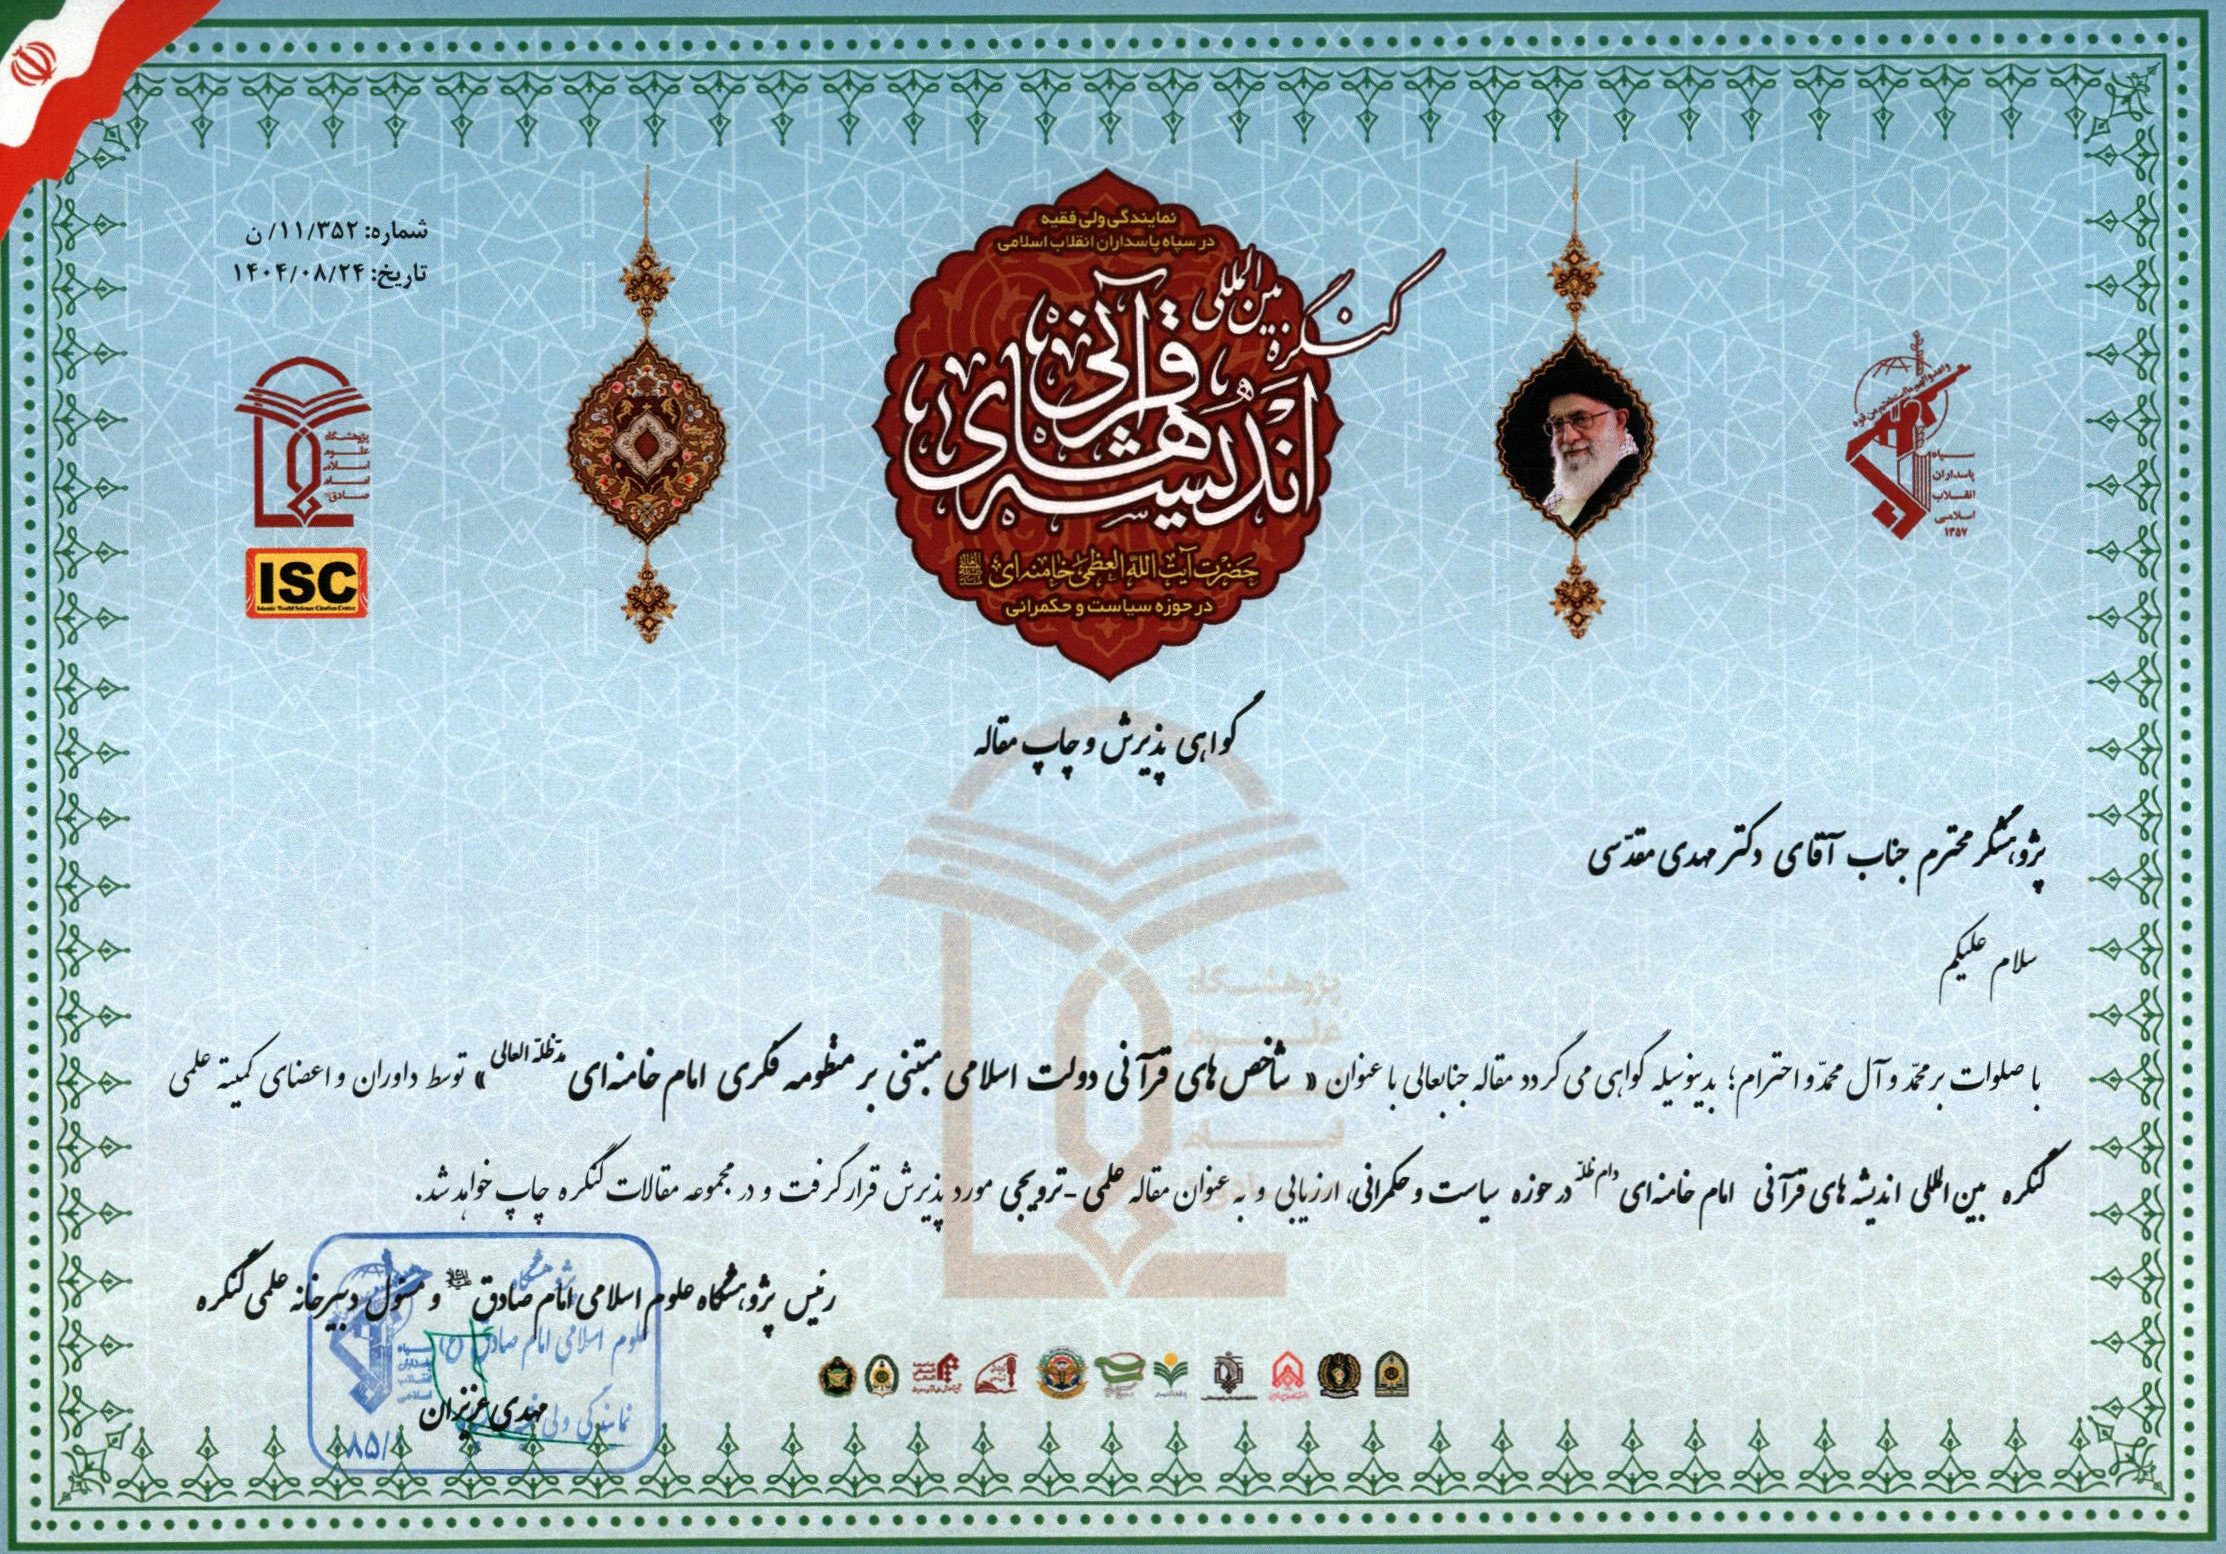 شماره: ۱۱/۳۵۲/ ن
تاریخ: ۱۴۰۴/۰۸/۲۴
نمایندگی ولی فقیه
در سپاه پاسداران انقلاب اسلامی
کنگره بین المللی
اندیشه های قرآنی
حضرت آیت الله العظمی خامنه ای
در حوزه سیاست و حکمرانی
پژوهشگاه
علوم
اسلامی
امام
صادق
ISC
Islamic World Science Citation Center
سپاه
پاسداران
انقلاب
اسلامی
۱۳۵۷
گواهی پذیرش و چاپ مقاله
پژوهشگر محترم جناب آقای دکتر مهدی مقدّسی
سلام علیکم
با صلوات بر محمّد و آل محمّد و احترام؛ بدینوسیله گواهی می گردد مقاله جنابعالی با عنوان « شاخص های قرآنی دولت اسلامی مبتنی بر منظومه فکری امام خامنه ای مدّظلّه العالی » توسط داوران و اعضای کمیته علمی
کنگره بین المللی اندیشه های قرآنی امام خامنه ای دام ظلّه در حوزه سیاست و حکمرانی، ارزیابی و به عنوان مقاله علمی -ترویجی مورد پذیرش قرار گرفت و در مجموعه مقالات کنگره چاپ خواهد شد.
رئیس پژوهشگاه علوم اسلامی امام صادق و مسئول دبیرخانه علمی کنگره
پژوهشگاه
علوم اسلامی امام صادق (ع)
مهدی عزیزان
نمایندگی ولی